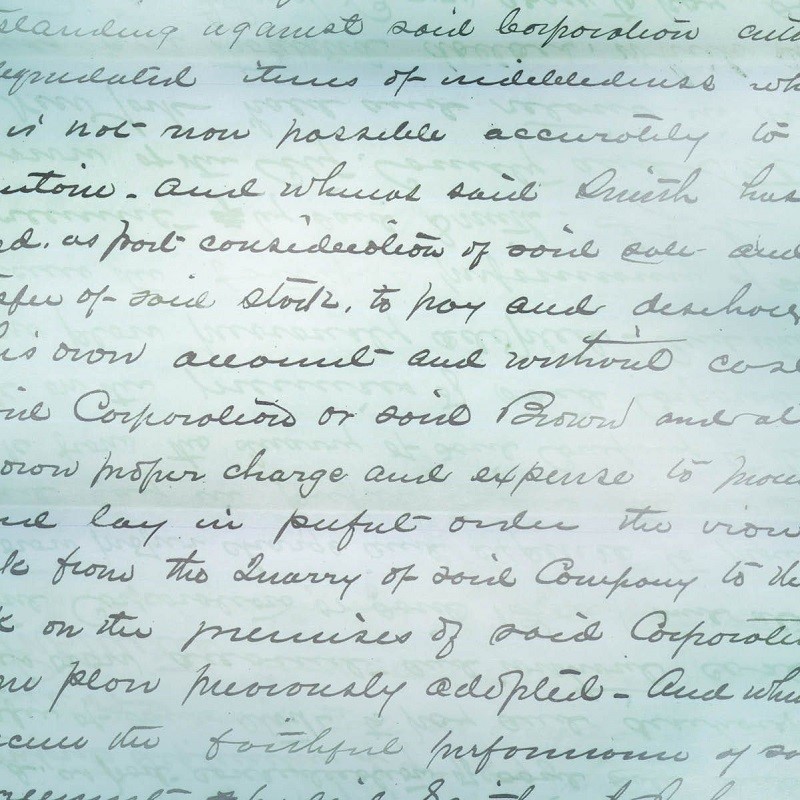 standing against said Corporation
items of indebtedness
is not now possible accurately to
And whereas said Smith has
as part consideration of said sale and
of said stock, to pay and
his own account and without
Corporation or said Brown and at
own proper charge and expense to
lay in perfect order the
from the Quarry of said Company to the
on the premises of said
plan previously adopted - And
the faithful performance of